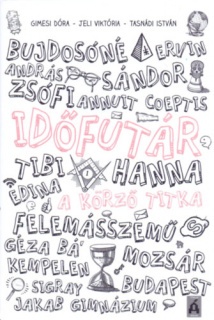 GIMESI DÓRA - JELI VIKTÓRIA - TASNÁDI ISTVÁN
BUJDOSÓNÉ ERVIN
ANDRÁS SÁNDOR
ZSÓFI ANNUIT COEPTIS
IDŐFUTÁR
TIBI HANNA
EDINA A KÖRZŐ TITKA
FELEMÁSSZEMŰ
GÉZA BÁ' MOZSÁR
KEMPELEN
SIGRAY BUDAPEST
JAKAB GIMNÁZIUM